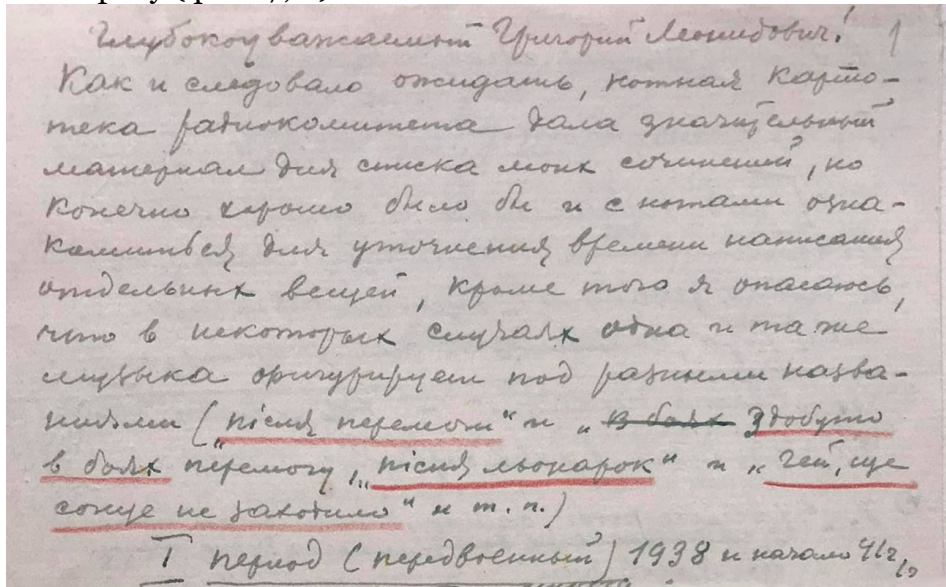 Глубокоуважаемый Григорий Леонидович! 1
Как и следовало ожидать, нотная карто-
тека радиокомитета дала значительный
материал для списка моих сочинений, но
конечно хорошо было бы и с нотами озна-
комиться для уточнения времени написания
отдельных вещей, кроме того я опасаюсь,
что в некоторых случаях одна и та же
музыка фигурирует под разными назва-
ниями („пісня перемоги“ и „в боях здобуто
в боях перемогу, „пісня льонарок“ и „Гей, ще
сонце не заходило“ и т. п.)
I период (передвоенный) 1938 и начало 41 г.